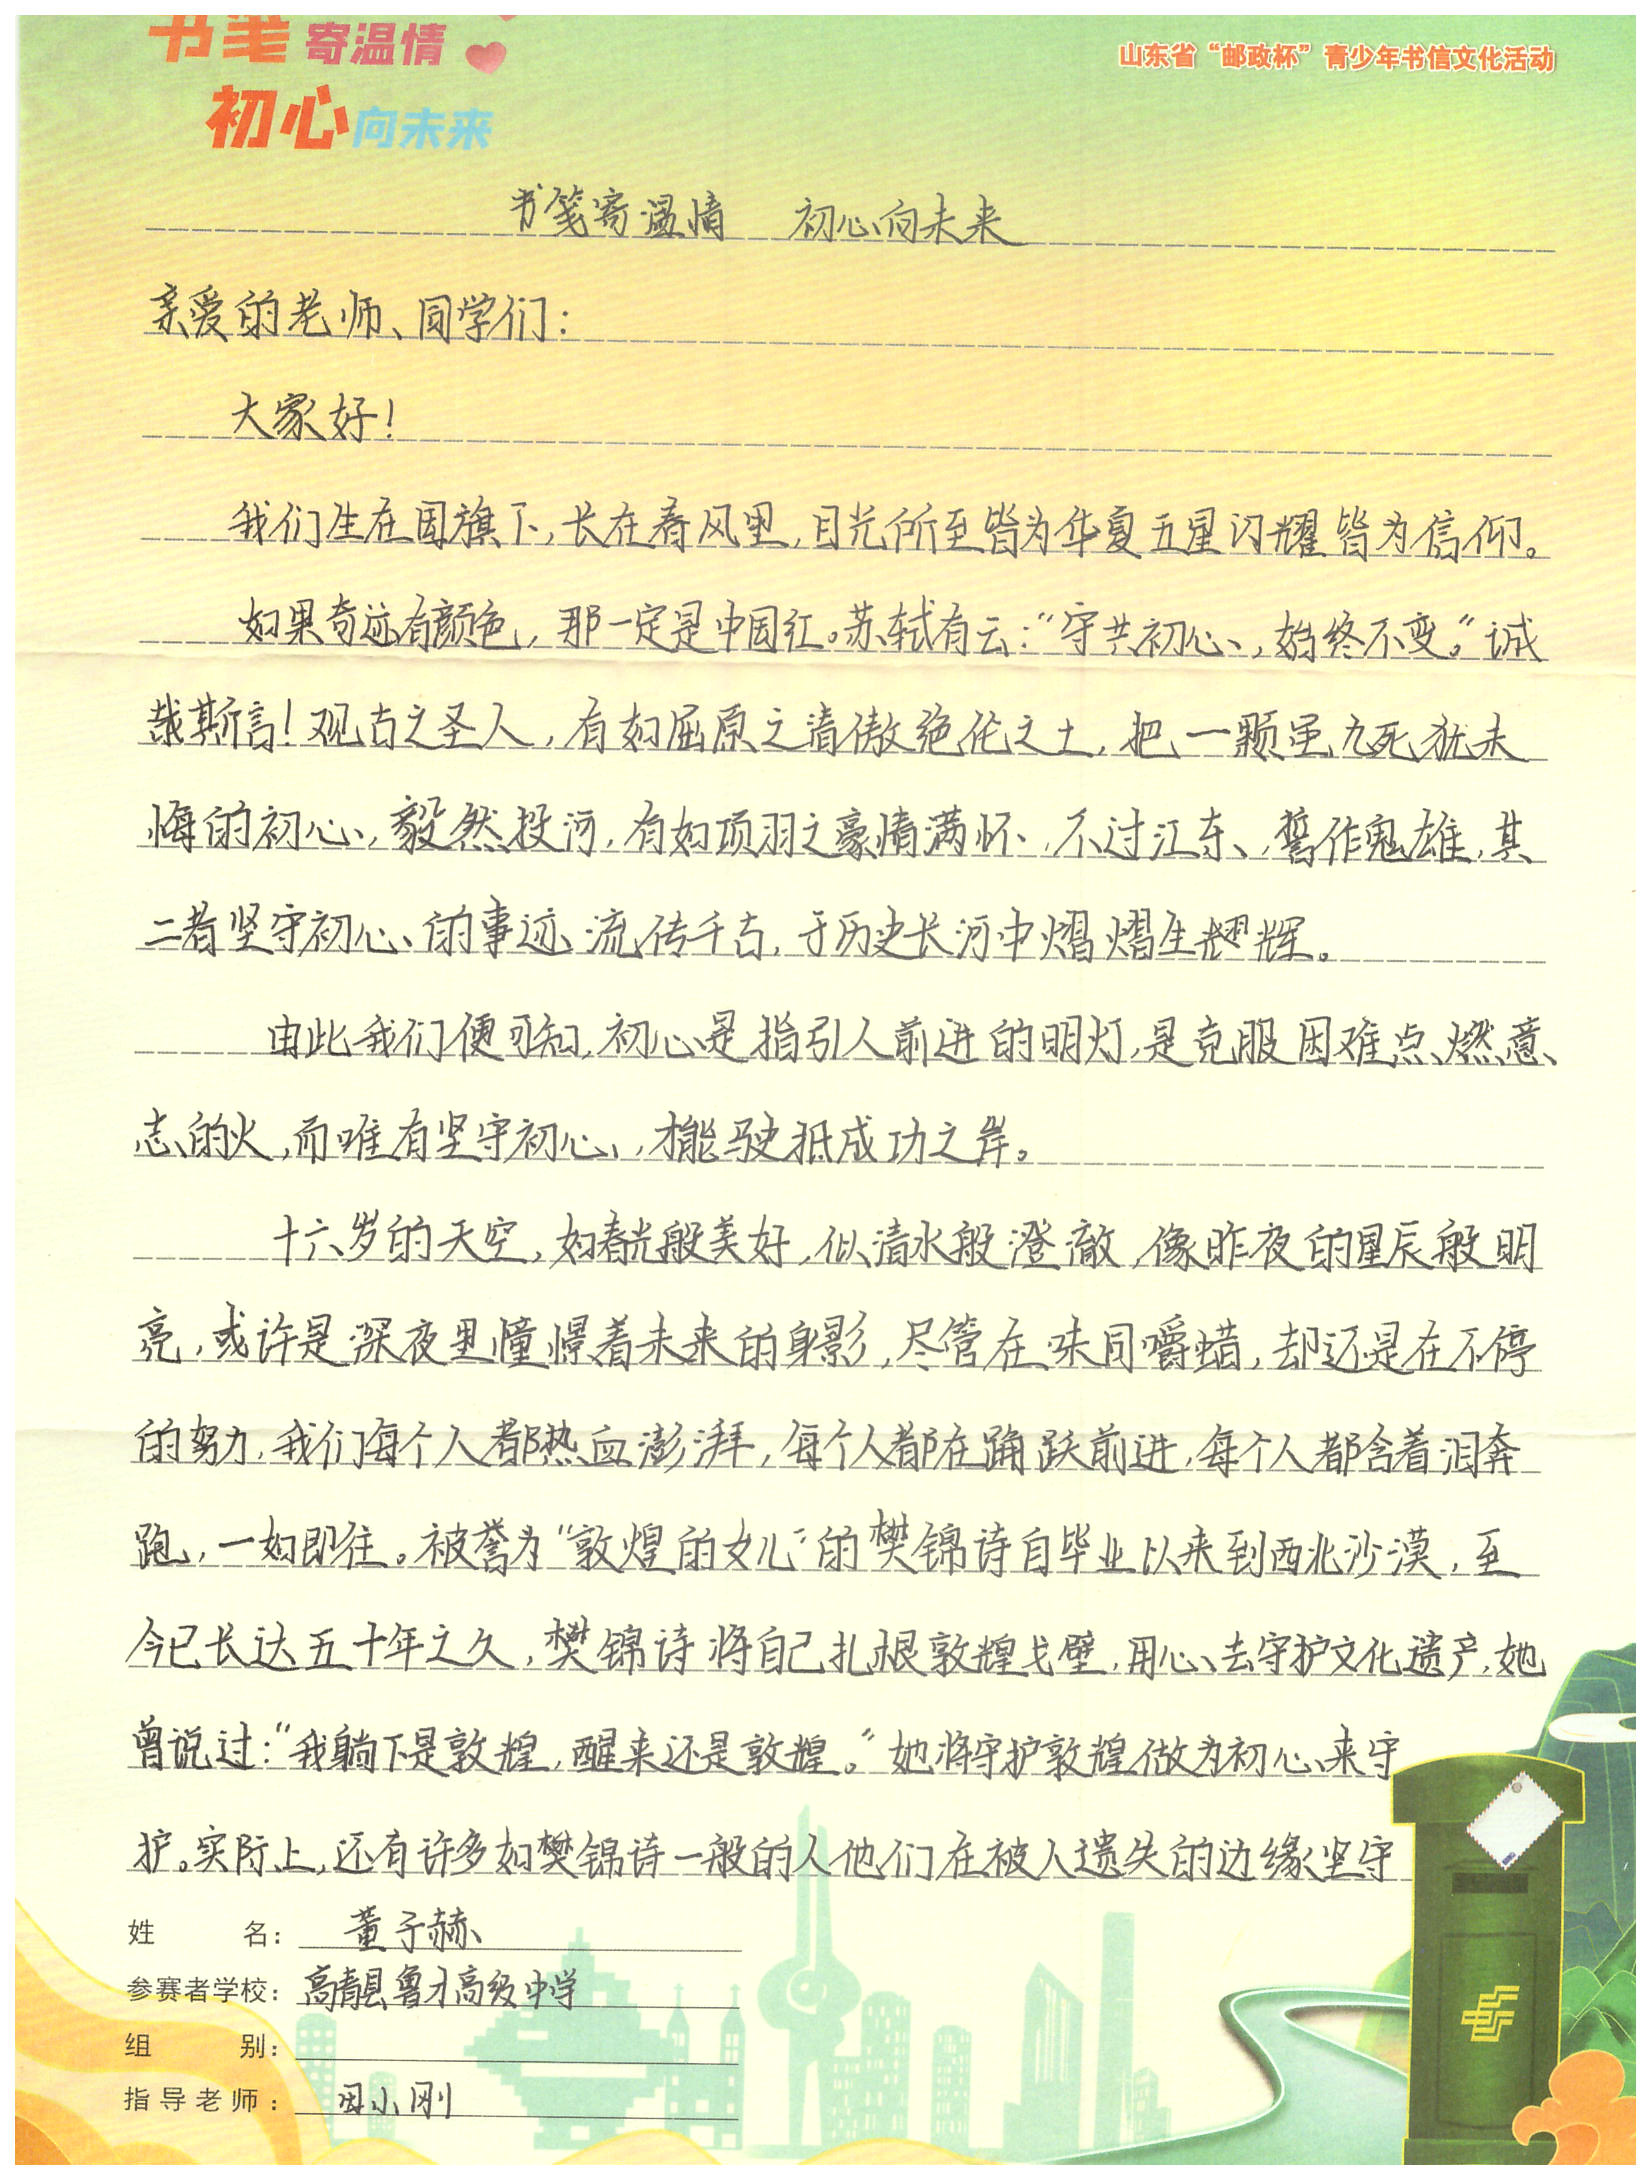 书笺寄温情
山东省“邮政杯”青少年书信文化活动
初心向未来
书笺寄温情 初心向未来
亲爱的老师、同学们：
大家好！
我们生在国旗下，长在春风里，目光所至皆为华夏五星闪耀皆为信仰。
如果奇迹有颜色，那一定是中国红。苏轼有云：“守其初心，始终不变。”诚
哉斯言！观古之圣人，有如屈原之清傲绝伦之士，把一颗虽九死犹未
悔的初心，毅然投河，有如项羽之豪情满怀，不过江东，誓作鬼雄，其
二者坚守初心的事迹流传千古，于历史长河中熠熠生耀辉。
由此我们便可知，初心是指引人前进的明灯，是克服困难点燃意
志的火，而唯有坚守初心，才能驶抵成功之岸。
十六岁的天空，如春光般美好，似清水般澄澈，像昨夜的星辰般明
亮，或许是深夜里憧憬着未来的身影，尽管在味同嚼蜡，却还是在不停
的努力，我们每个人都热血澎湃，每个人都在踊跃前进，每个人都含着泪奔
跑，一如即往。被誉为“敦煌的女儿”的樊锦诗自毕业以来到西北沙漠，至
今已长达五十年之久，樊锦诗将自己扎根敦煌戈壁，用心去守护文化遗产，她
曾说过：“我躺下是敦煌，醒来还是敦煌。”她将守护敦煌做为初心来守
护。实际上，还有许多如樊锦诗一般的人他们在被人遗失的边缘坚守
姓 名： 董子赫
参赛者学校： 高青县鲁才高级中学
组 别：
指导老师： 田小刚